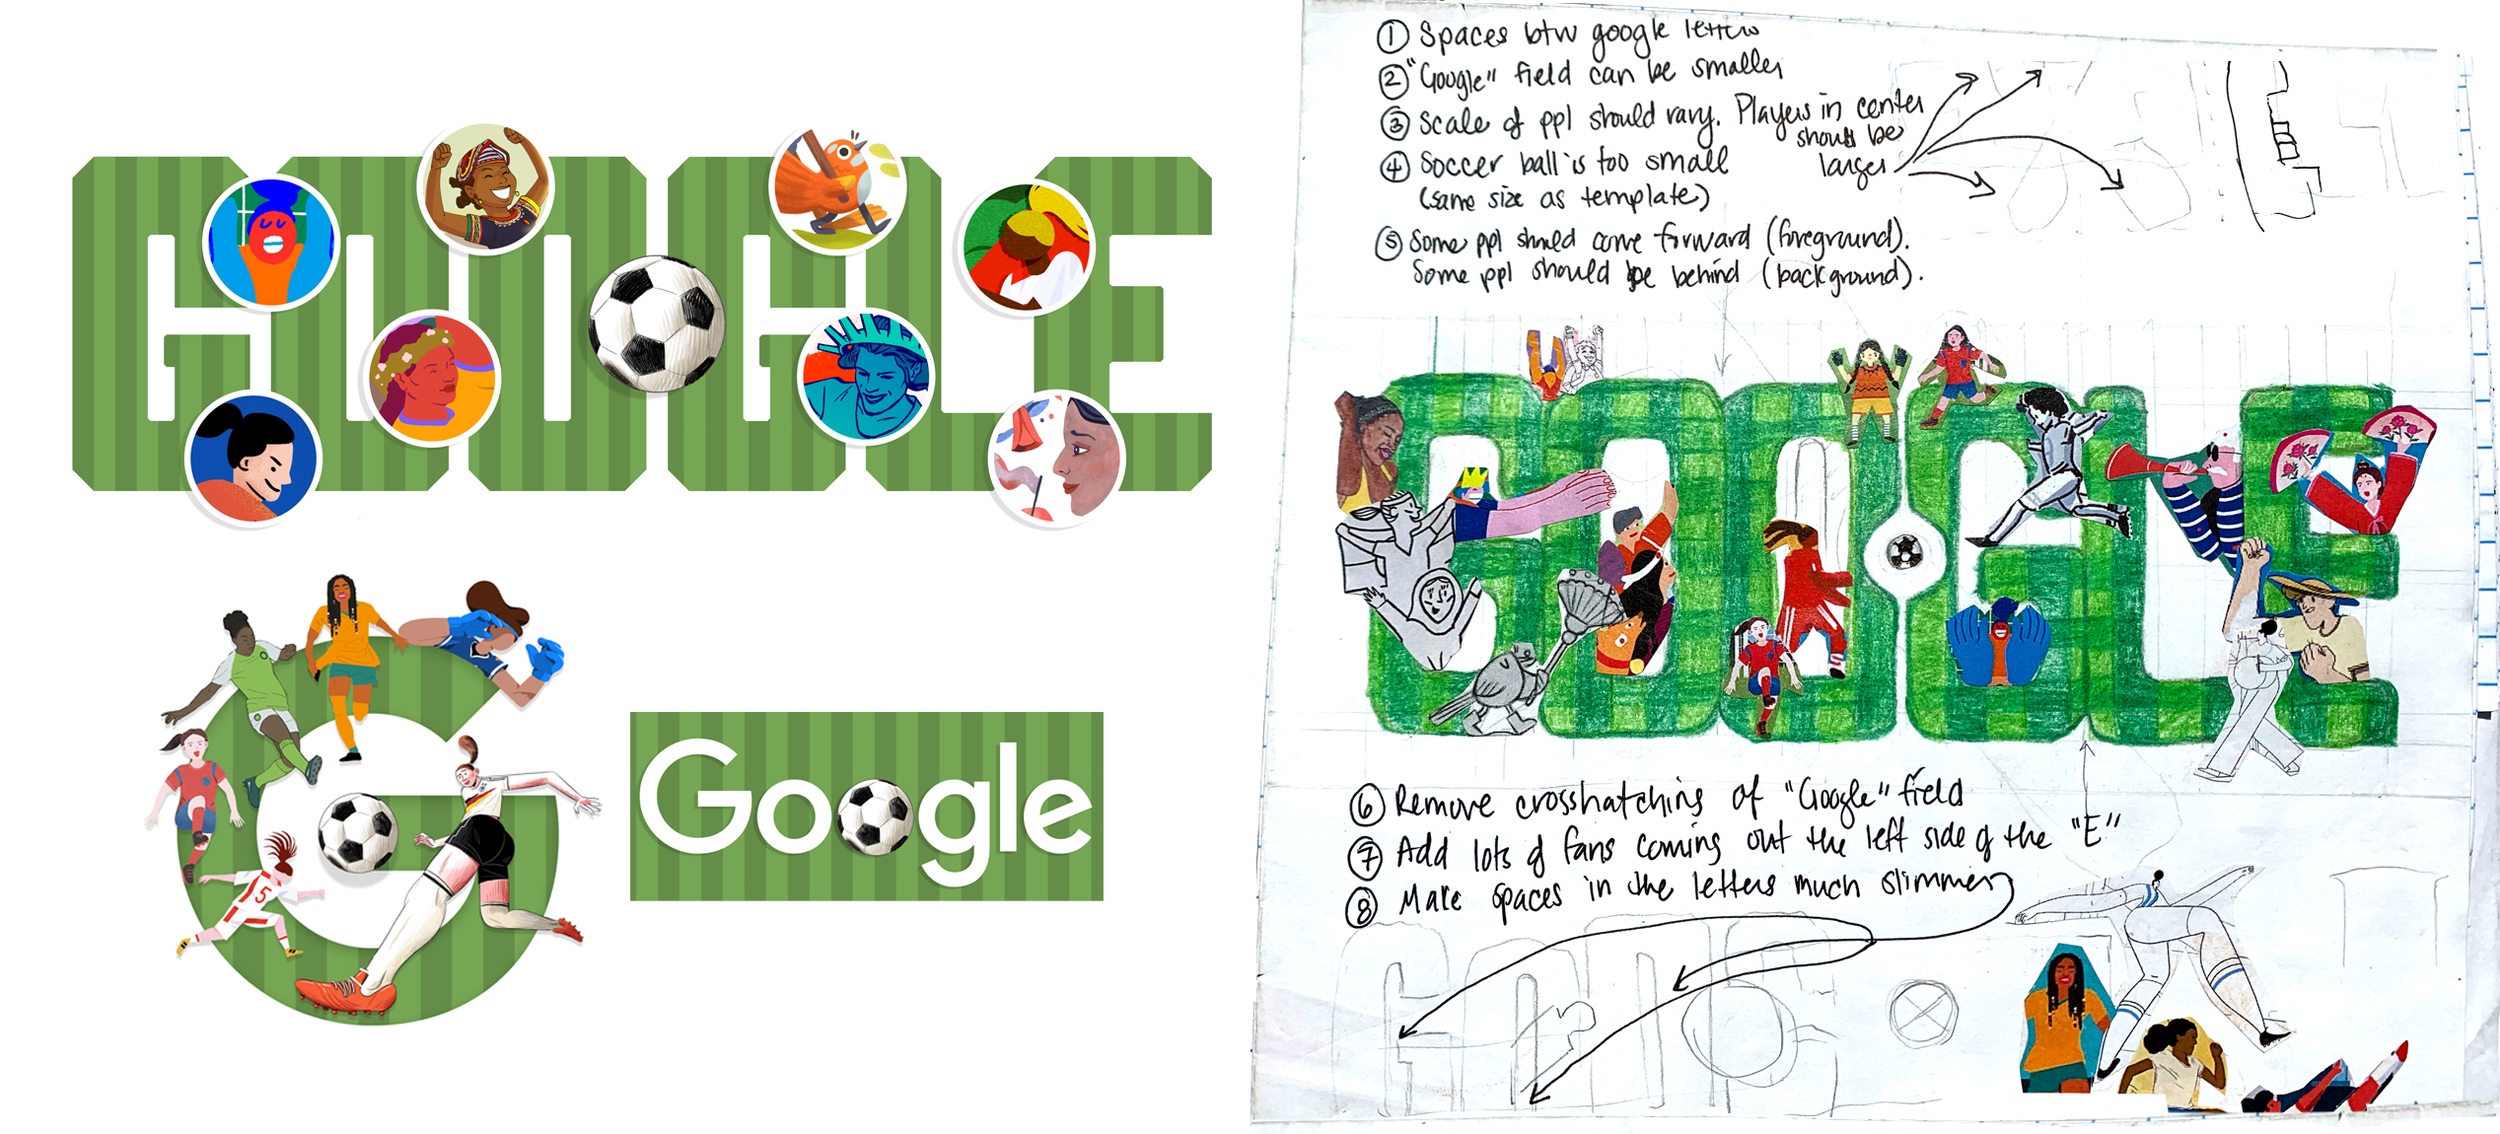 GOOGLE
5
Google
① Spaces btw google letters
② "Google" field can be smaller
③ Scale of ppl should vary. Players in center should be larger
④ Soccer ball is too small
(same size as template)
⑤ Some ppl should come forward (foreground).
Some ppl should be behind (background).
GOOGLE
⑥ Remove crosshatching of "Google" field
⑦ Add lots of fans coming out the left side of the "E"
⑧ Make spaces in the letters much slimmer